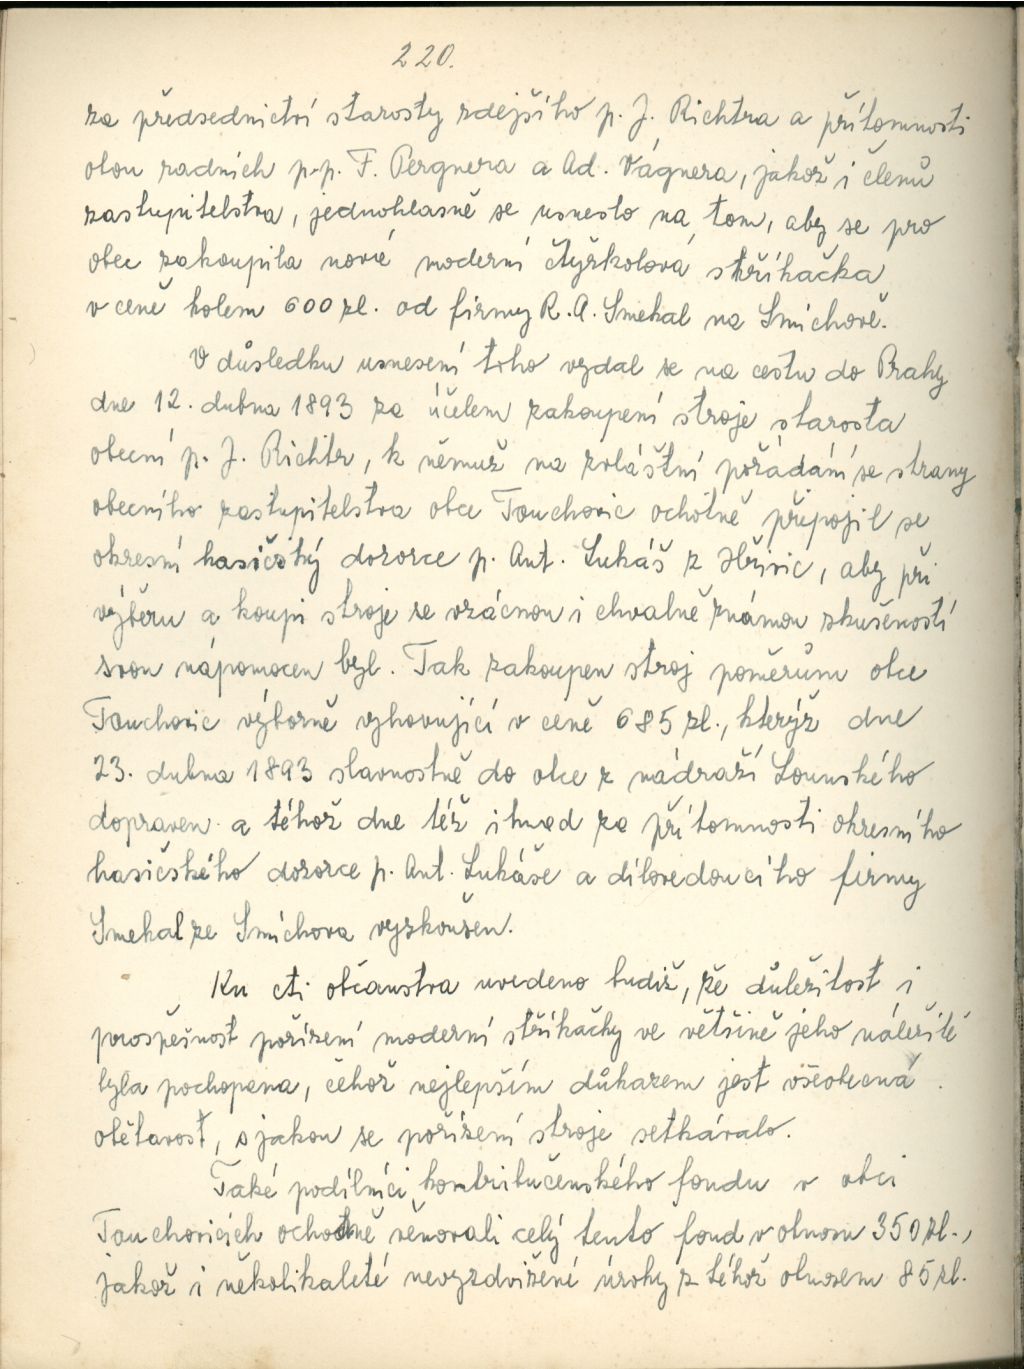 220.
za předsednictví starosty zdejšího p. J. Richtra a přítomnosti
obou radních p.p. F. Pergnera a Ad. Vágnera, jakož i členů
zastupitelstva, jednohlasně se usneslo na tom, aby se pro
obec zakoupila nová moderní čtyřkolová stříkačka
v ceně kolem 600 zl. od firmy R. A. Smekal na Smíchově.
V důsledku usnesení toho vydal se na cestu do Prahy
dne 12. dubna 1893 za účelem zakoupení stroje starosta
obecní p. J. Richtr, k němuž na zvláštní požádání se strany
obecního zastupitelstva obce Touchovic ochotně připojil se
okresní hasičský dozorce p. Ant. Lukáš z Hřivic, aby při
výběru a koupi stroje se vzácnou i chvalně známou zkušeností
svou nápomocen byl. Tak zakoupen stroj poměrům obce
Touchovic výborně vyhovující v ceně 685 zl., kterýž dne
23. dubna 1893 slavnostně do obce z nádraží Lounského
dopraven a téhož dne též ihned za přítomnosti okresního
hasičského dozorce p. Ant. Lukáše a dílovedoucího firmy
Smekal ze Smíchova vyzkoušen.
Ku cti občanstva uvedeno budiž, že důležitost i
prospěšnost pořízení moderní stříkačky ve většině jeho náležitě
byla pochopena, čehož nejlepším důkazem jest všeobecná
obětavost, s jakou se pořízení stroje setkávalo.
Také podílníci kontribučenského fondu v obci
Touchovicích ochotně věnovali celý tento fond v obnosu 350 zl.,
jakož i několikaleté nevyzdvižené úroky z téhož obnosem 85 zl.